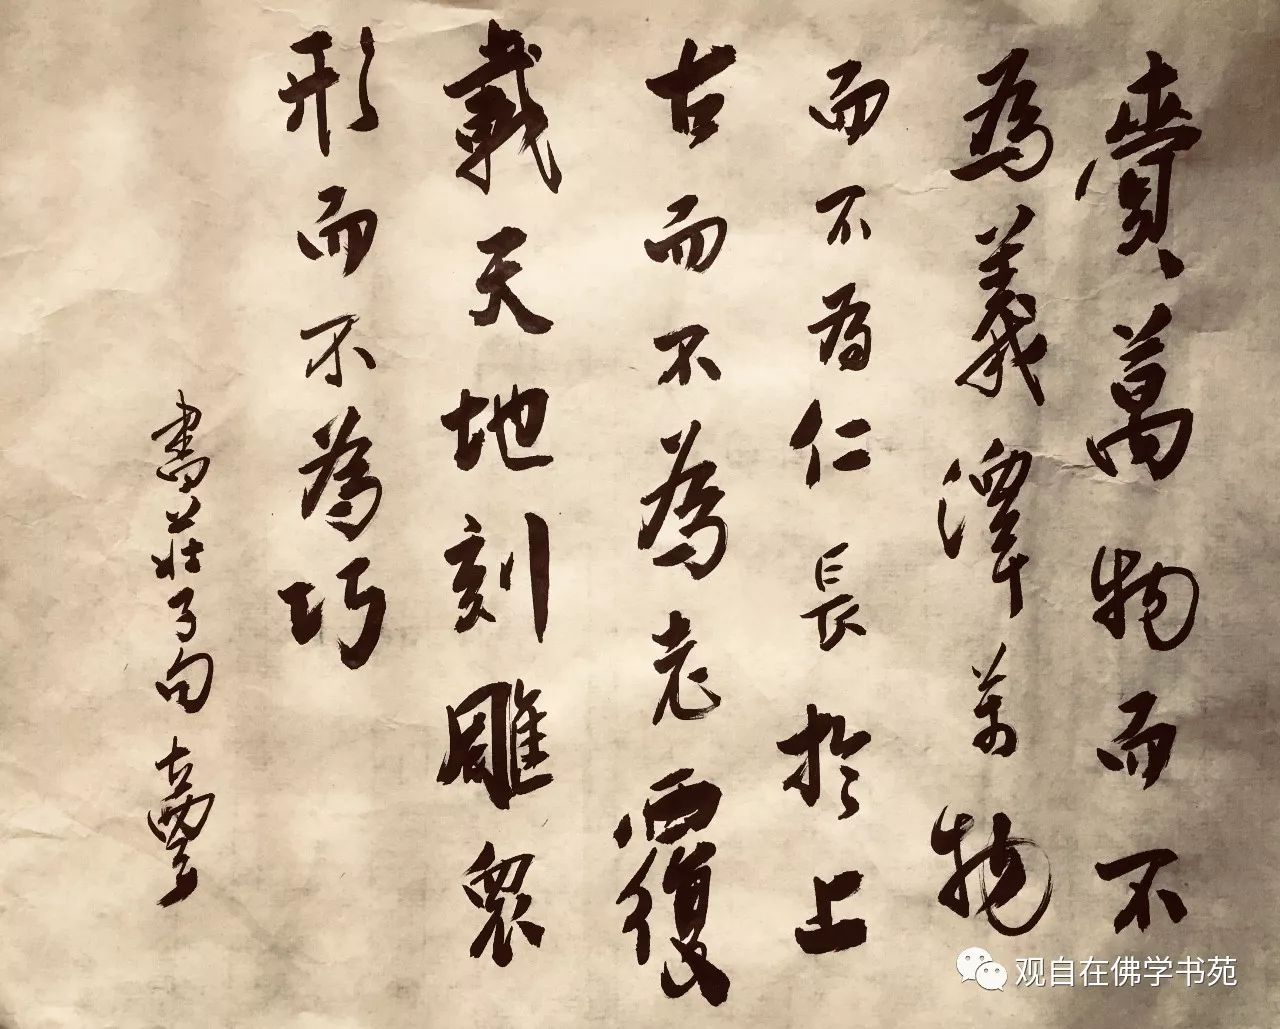 賷萬物而不
為義澤萬物
而不為仁長於上
古而不為老覆
載天地刻雕眾
形而不為巧
書莊子句 古
观自在佛学书苑